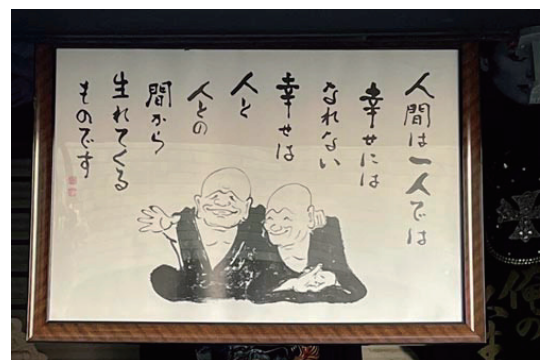 人間は一人では
幸せには
なれない
幸せは
人と
人との
間から
生れてくる
ものです
俺の